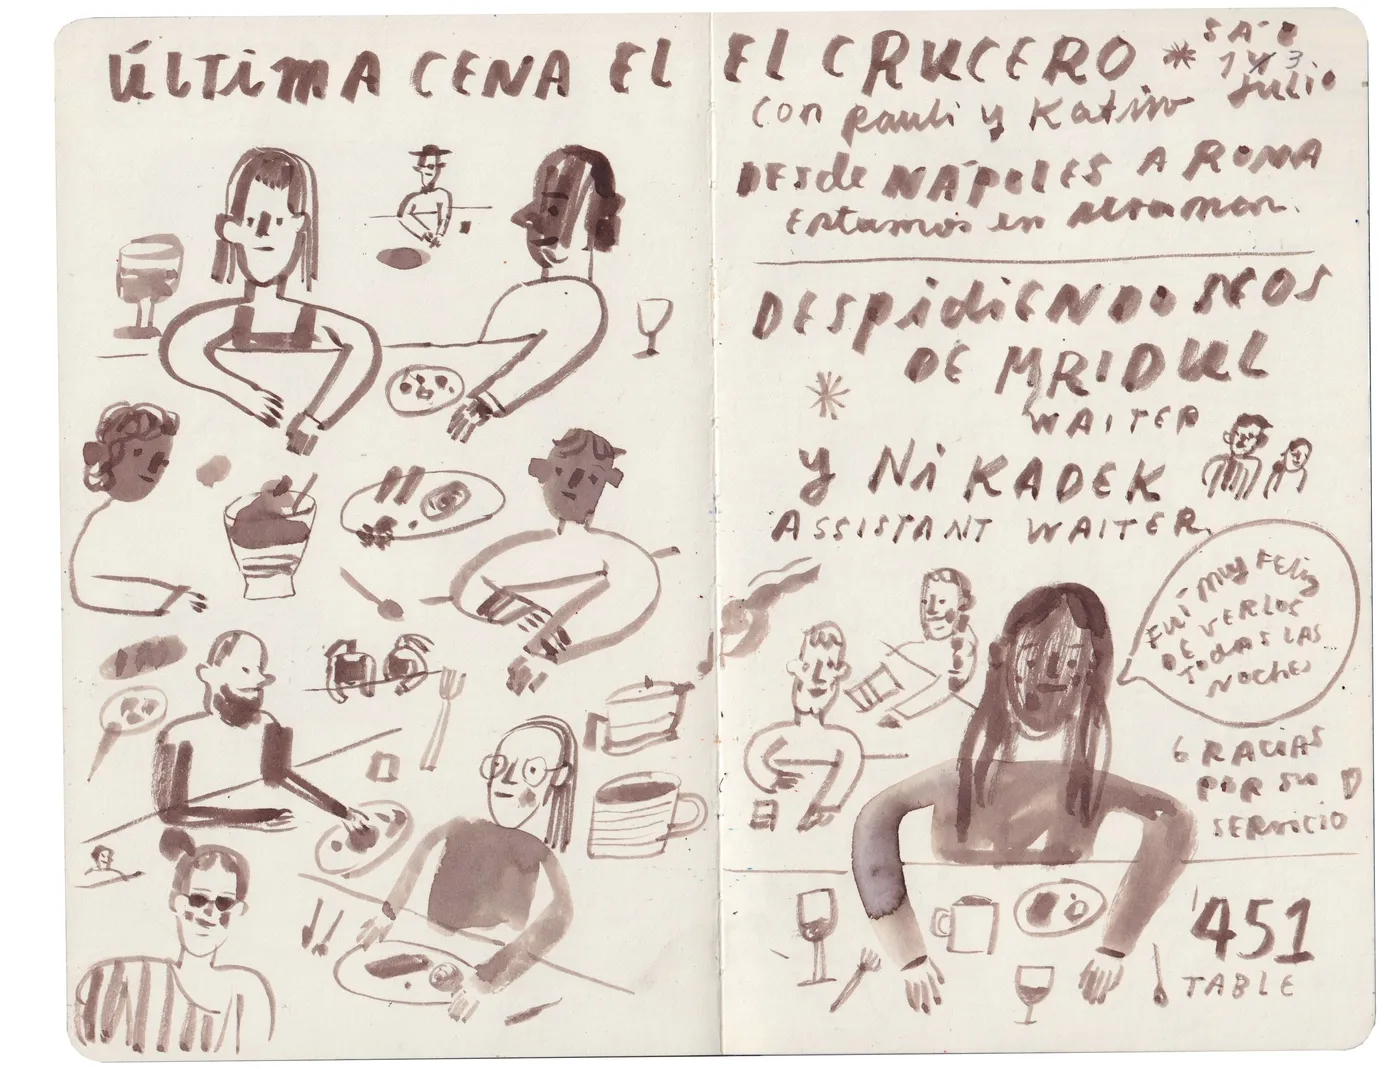 ÚLTIMA CENA EL
EL CRUCERO * SÁB
13
Julio
con pauli y Katiw
DESde NÁPOLES A ROMA
Estamos en altamar.
DESPIDIENDONOS
DE MRIDUL
WAITER
y Ni KADEK
ASSISTANT WAITER.
FUI MUY FELIZ
DE VERLOS
TODAS LAS
NOCHES
GRACIAS
POR SU
SERVICIO
451
TABLE